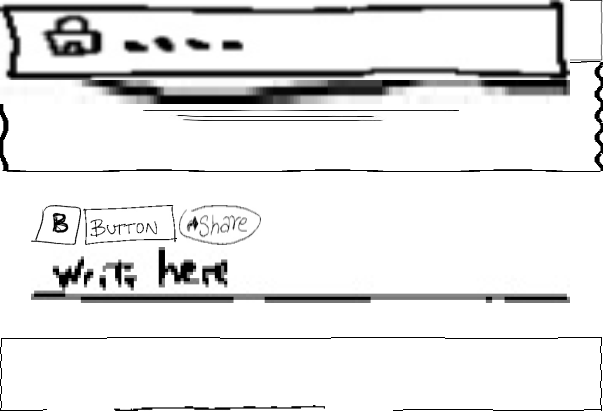 B BUTTON Share
Write here